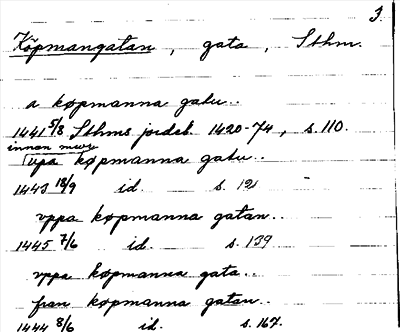 3.
Köpmangatan, gata, Sthm.
a køpmanna gatu..
1441 5/8 Sthms jordeb. 1420-74, s. 110.
innan mwr
vpa køpmanna gatu..
1443 18/9 id. s. 121
vppa køpmanna gatan..
1445 7/6 id. s. 139
vppa køpmanna gata..
fran køpmanna gatan..
1444 8/6 id. s. 167.